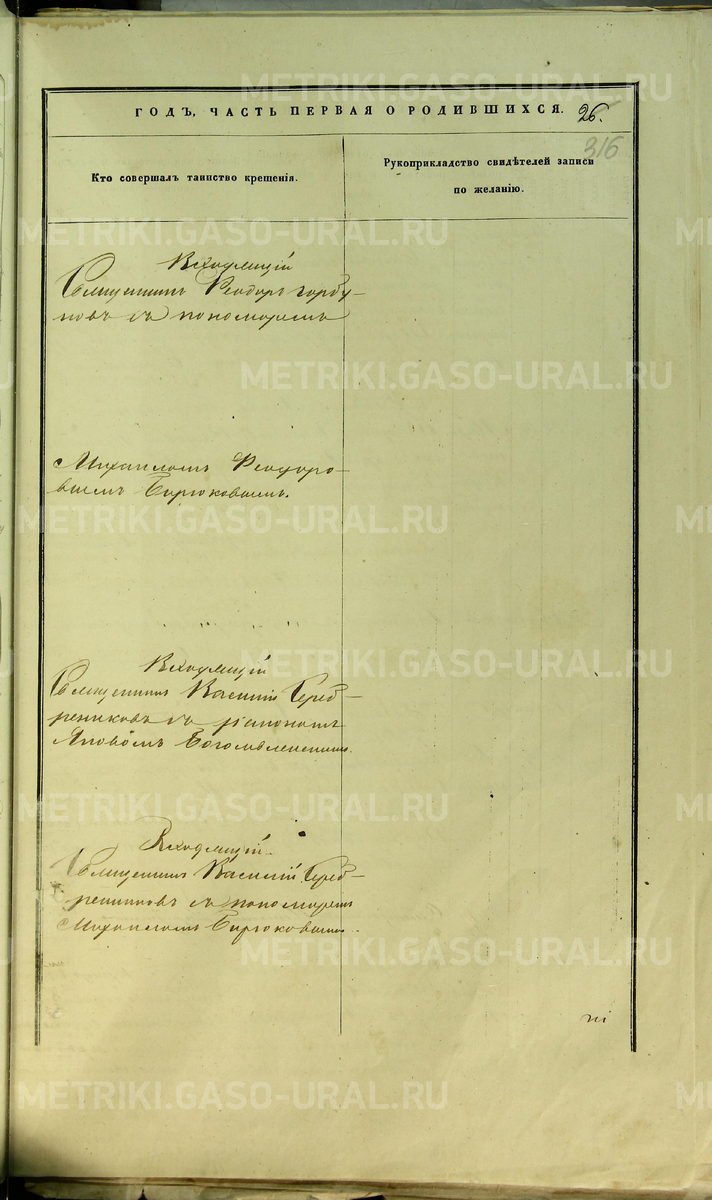 ГОДЪ, ЧАСТЬ ПЕРВАЯ О РОДИВШИХСЯ.
26.
316
Кто совершалъ таинство крещенія.
Рукоприкладство свидѣтелей записи
по желанію.
Священникъ Ѳеодоръ горбу-
новъ съ пономаремъ
Михаиломъ Ѳеодоро-
вымъ Бирюковымъ.
Священникъ Василій Сереб-
рениковъ съ діакономъ
Яковомъ Богоявленскимъ.
Священникъ Василій Сереб-
рениковъ съ пономаремъ
Михаиломъ Бирюковымъ.
METRIKI.GASO-URAL.RU